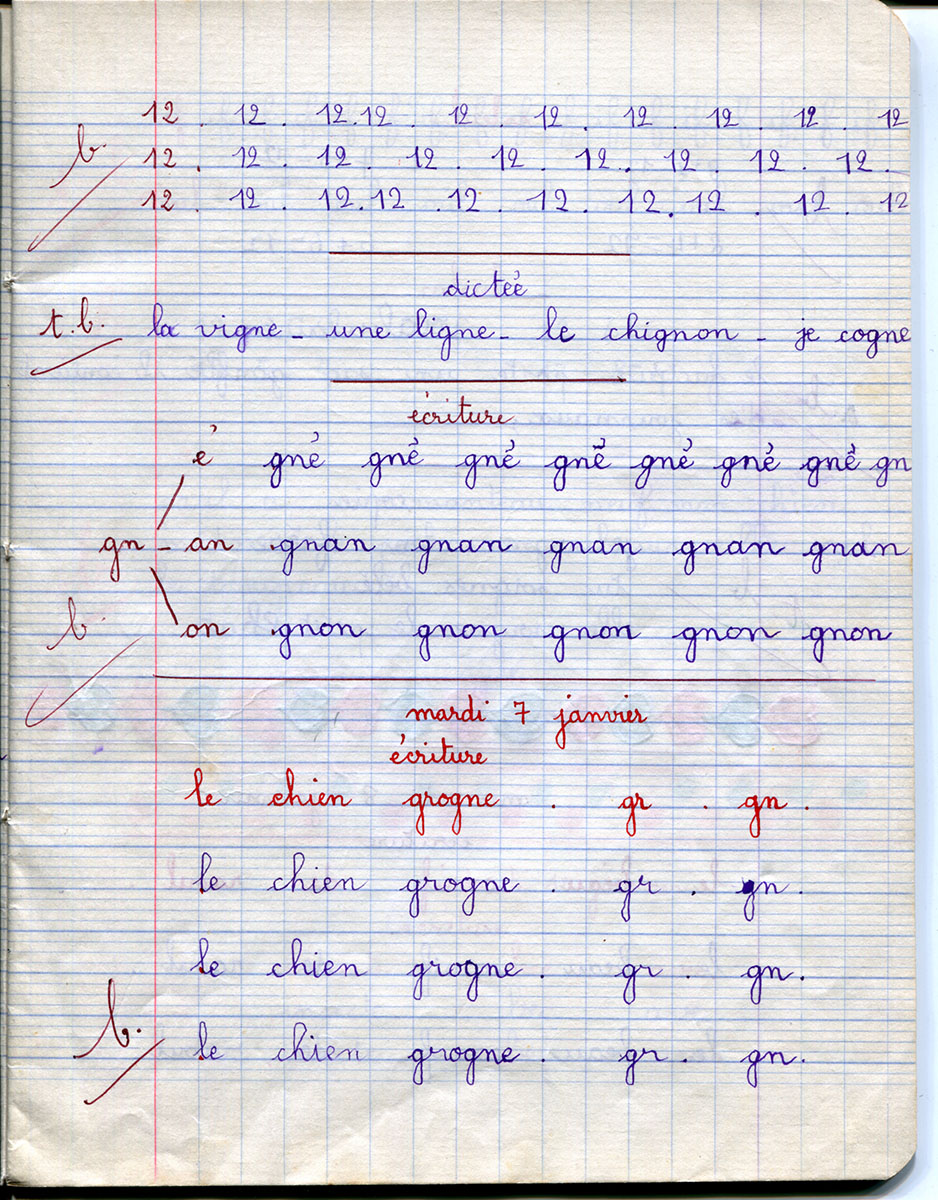 12 . 12 . 12.12 . 12 . 12 . 12 . 12 . 12 . 12
b. 12 . 12 . 12 . 12 . 12 . 12 . 12 . 12 . 12 .
12 . 12 . 12.12 . 12 . 12 . 12 . 12 . 12 . 12
dictée
t.b. la vigne - une ligne - le chignon - je cogne
écriture
é gné gné gné gné gné gné gné gn
gn - an gnan gnan gnan gnan gnan
b. on gnon gnon gnon gnon gnon
mardi 7 janvier
écriture
le chien grogne . gr . gn .
le chien grogne . gr . gn .
le chien grogne . gr . gn .
b. le chien grogne . gr . gn .